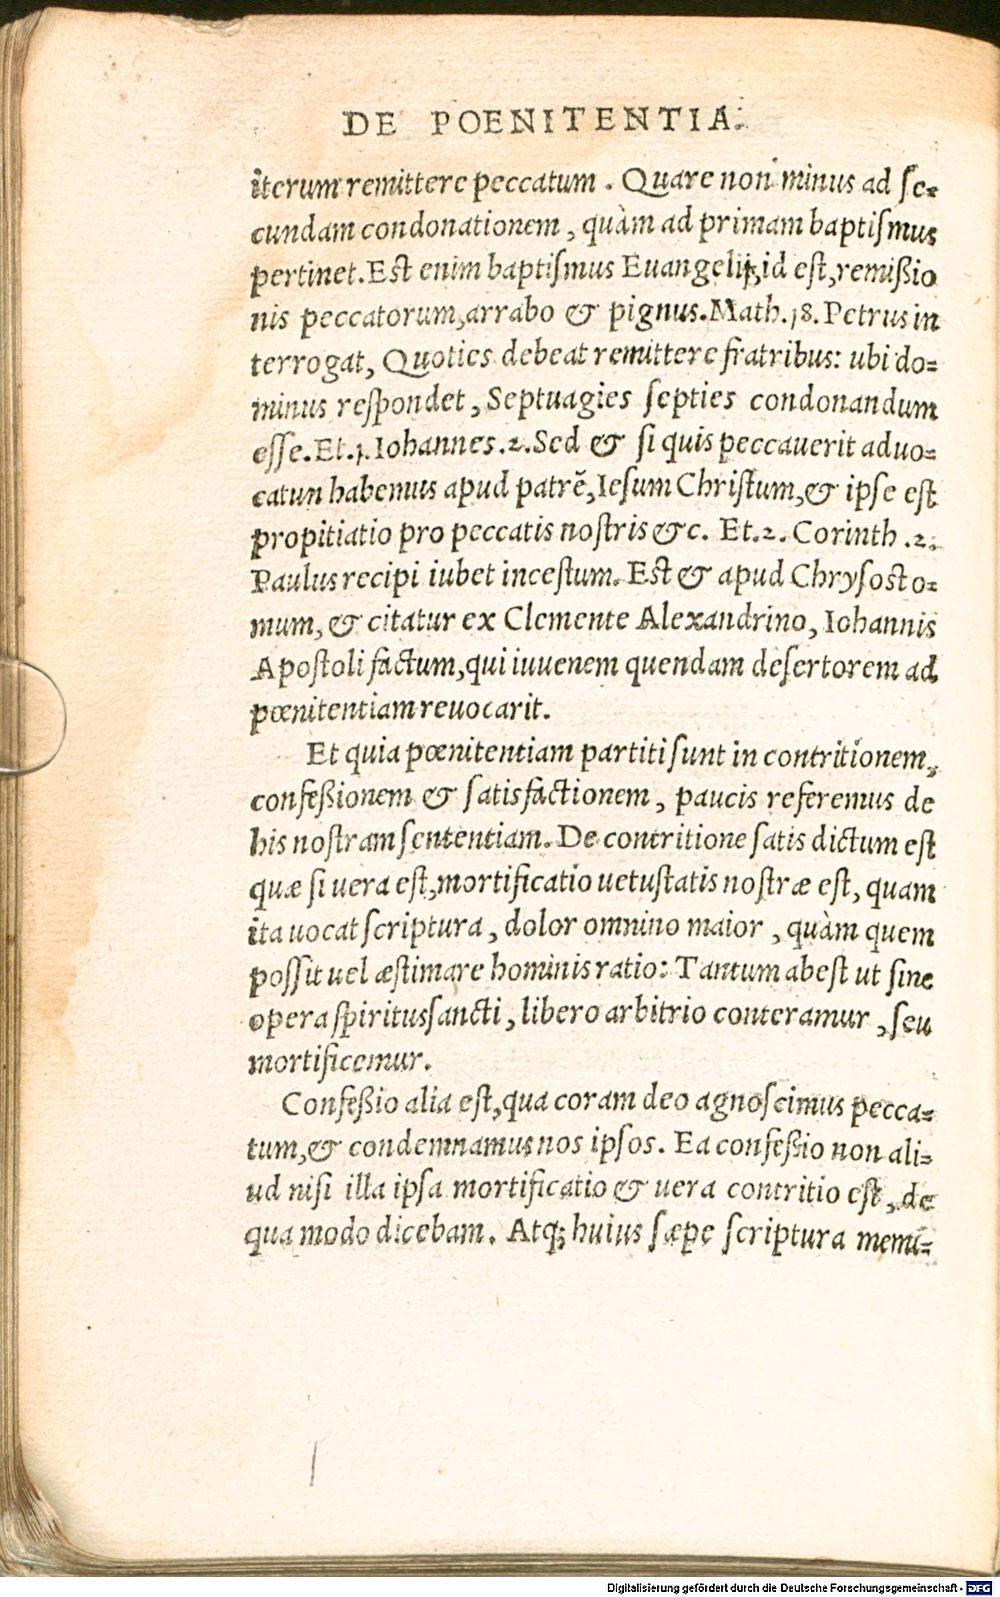 DE POENITENTIA.
iterum remittere peccatum. Quare non minus ad ſe-
cundam condonationem, quàm ad primam baptiſmus
pertinet. Eſt enim baptiſmus Euangelij, id eſt, remißio
nis peccatorum, arrabo & pignus. Math. 18. Petrus in
terrogat, Quoties debeat remittere fratribus: ubi do-
minus reſpondet, Septuagies ſepties condonandum
eſſe. Et. 1. Iohannes. 2. Sed & ſi quis peccauerit aduo-
catun habemus apud patrẽ, Ieſum Chriſtum, & ipſe eſt
propitiatio pro peccatis noſtris &c. Et. 2. Corinth. 2.
Paulus recipi iubet inceſtum. Eſt & apud Chryſoſto-
mum, & citatur ex Clemente Alexandrino, Iohannis
Apoſtoli factum, qui iuuenem quendam deſertorem ad
pœnitentiam reuocarit.
Et quia pœnitentiam partiti ſunt in contritionem,
confeßionem & ſatisfactionem, paucis referemus de
his noſtram ſententiam. De contritione ſatis dictum eſt
quæ ſi uera eſt, mortificatio uetuſtatis noſtræ eſt, quam
ita uocat ſcriptura, dolor omnino maior, quàm quem
poſſit uel æſtimare hominis ratio: Tantum abeſt ut ſine
opera ſpiritusſancti, libero arbitrio conteramur, ſeu
mortificemur.
Confeßio alia eſt, qua coram deo agnoſcimus pecca-
tum, & condemnamus nos ipſos. Ea confeßio non ali-
ud niſi illa ipſa mortificatio & uera contritio eſt, de
qua modo dicebam. Atq; huius ſæpe ſcriptura memi-
Digitalisierung gefördert durch die Deutsche Forschungsgemeinschaft - DFG